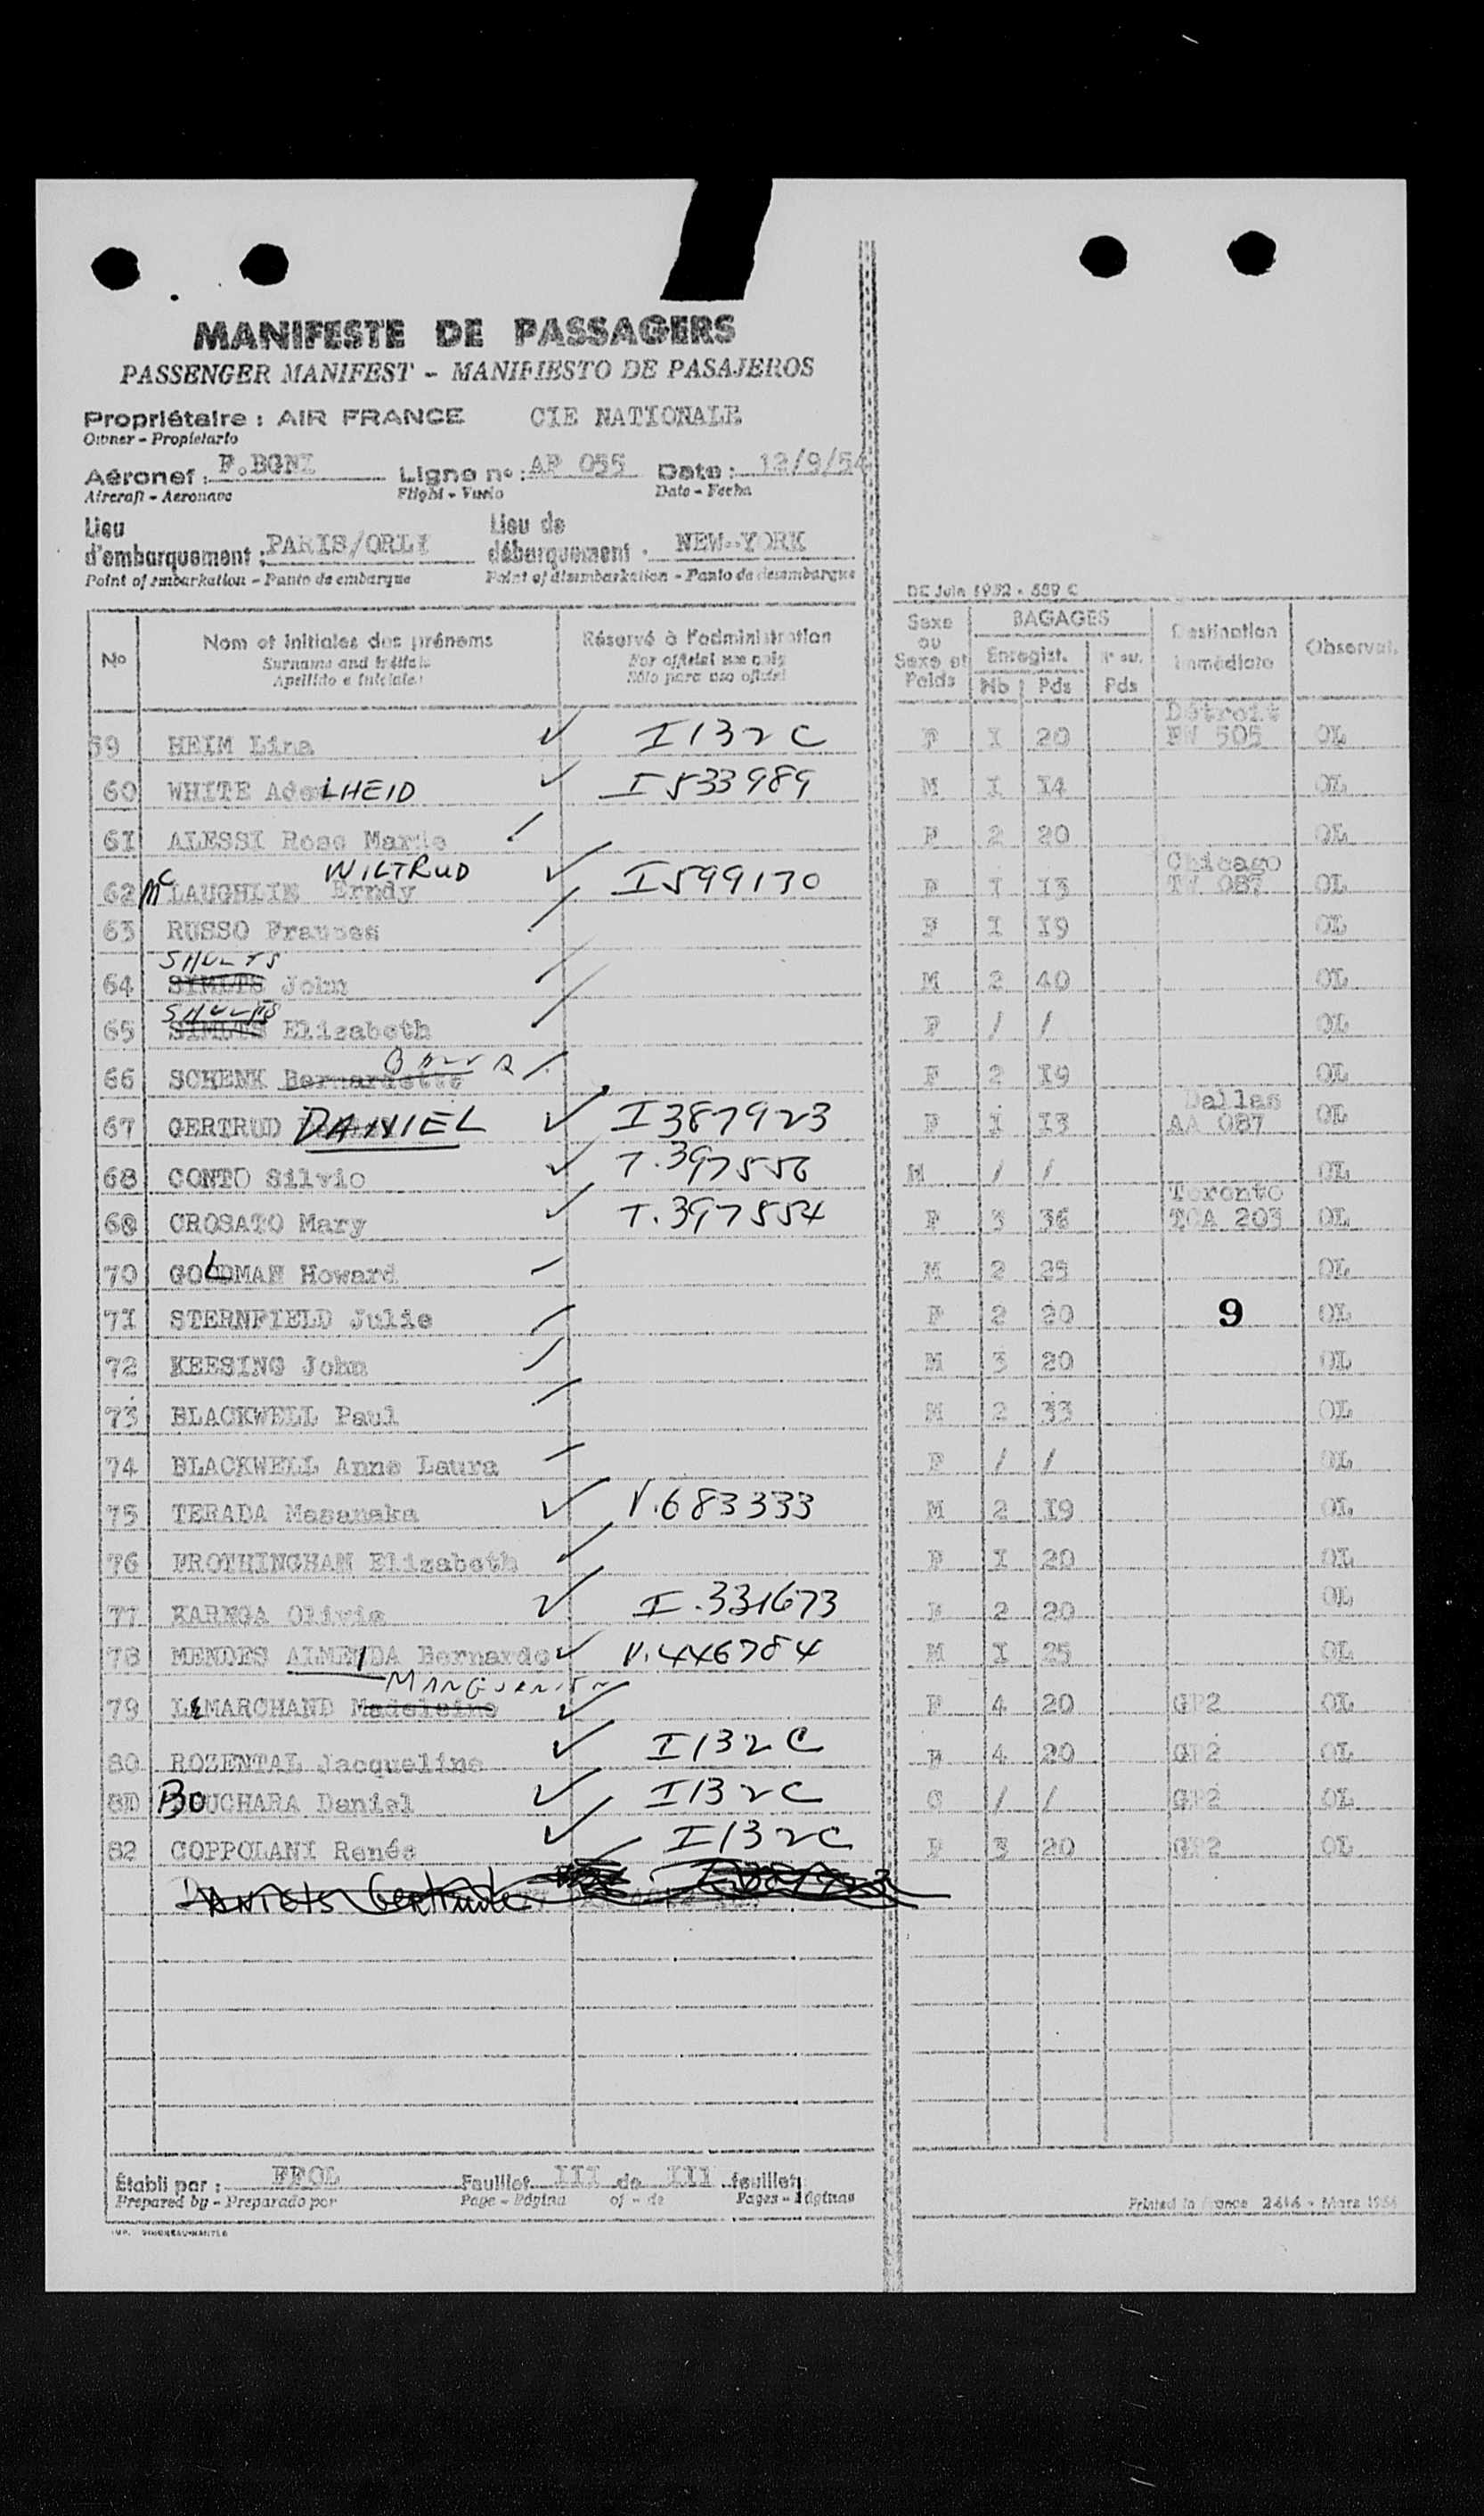 MANIFESTE DE PASSAGERS
PASSENGER MANIFEST - MANIFIESTO DE PASAJEROS
Propriétaire : AIR FRANCE CIE NATIONALE
Owner - Propietario
Aéronef : F.BGNI Ligne n° : AF 055 Date : 12/9/54
Aircraft - Aeronave Flight - Vuelo Date - Fecha
Lieu d'embarquement : PARIS/ORLY Lieu de débarquement : NEW-YORK
Point of embarkation - Punto de embarque Point of disembarkation - Punto de desembarque
DE Juin 1952 - 559 C
No Nom et initiales des prénoms Réservé à l'administration Sexe ou Sexe et Poids BAGAGES Destination immédiate Observat.
Surname and initials For official use only Enregist. N° su.
Apellido e iniciales Sólo para uso oficial Nb Pds Pds
59 HEIM Lina I132C F I 20 Détroit NW 505 OL
60 WHITE AdeLHEID I533989 M I I4 OL
6I ALESSI Rose Marie F 2 20 OL
WILTRUD
62 McLAUGHLIN Erndy I599170 F I I3 Chicago TW 087 OL
63 RUSSO Frances F I I9 OL
SHULTS
64 SIMUTS John M 2 40 OL
SHULTS
65 SIMUTS Elizabeth F / / OL
66 SCHENK Bernardette F 2 I9 OL
67 GERTRUD DANIEL I387923 F I I3 Dallas AA 087 OL
68 CONTO Silvio T.397556 M / / OL
69 CROSATO Mary T.397554 F 3 36 Toronto TCA 203 OL
70 GOLDMAN Howard M 2 25 OL
7I STERNFIELD Julie F 2 20 9 OL
72 KEESING John M 3 20 OL
73 BLACKWELL Paul M 2 33 OL
74 BLACKWELL Anne Laura F / / OL
75 TERADA Masanaka V.683333 M 2 I9 OL
76 FROTHINGHAM Elizabeth F I 20 OL
77 KARNGA Olivia I.331673 F 2 20 OL
78 MENDES ALMEIDA Bernardo V.446784 M I 25 OL
79 LeMARCHAND Madeleine F 4 20 GP2 OL
80 ROZENTAL Jacqueline I132C F 4 20 GP2 OL
8I BOUCHARA Daniel I132C C / / GP2 OL
82 COPPOLANI Renée I132C F 3 20 GP2 OL
Établi par : FFOL Feuillet III de III feuillets
Prepared by - Preparado por Page - Página of - de Pages - Páginas
Printed in France 2414 - Mars 1954